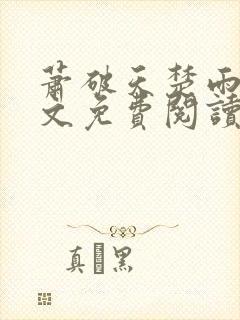 蕭破天楚雨
文免費閱讀
真 黑